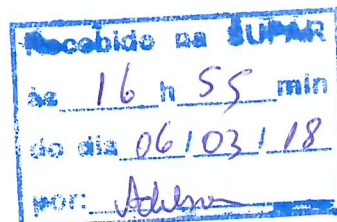 Recebido na SUPAR
às 16 h 55 min
do dia 06/03/18
por: